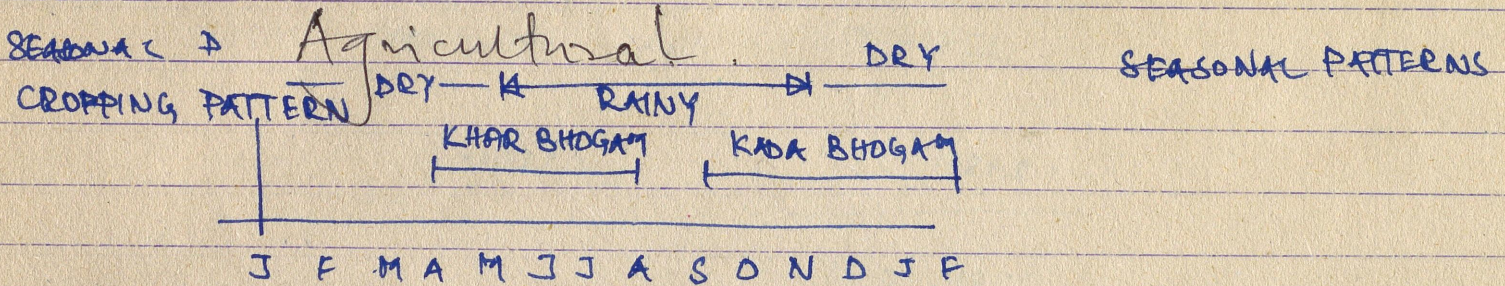 SEASONAL Agricultural.
DRY
SEASONAL PATTERNS
CROPPING PATTERN DRY RAINY
KHAR BHOGAM KADA BHOGAM
J F M A M J J A S O N D J F